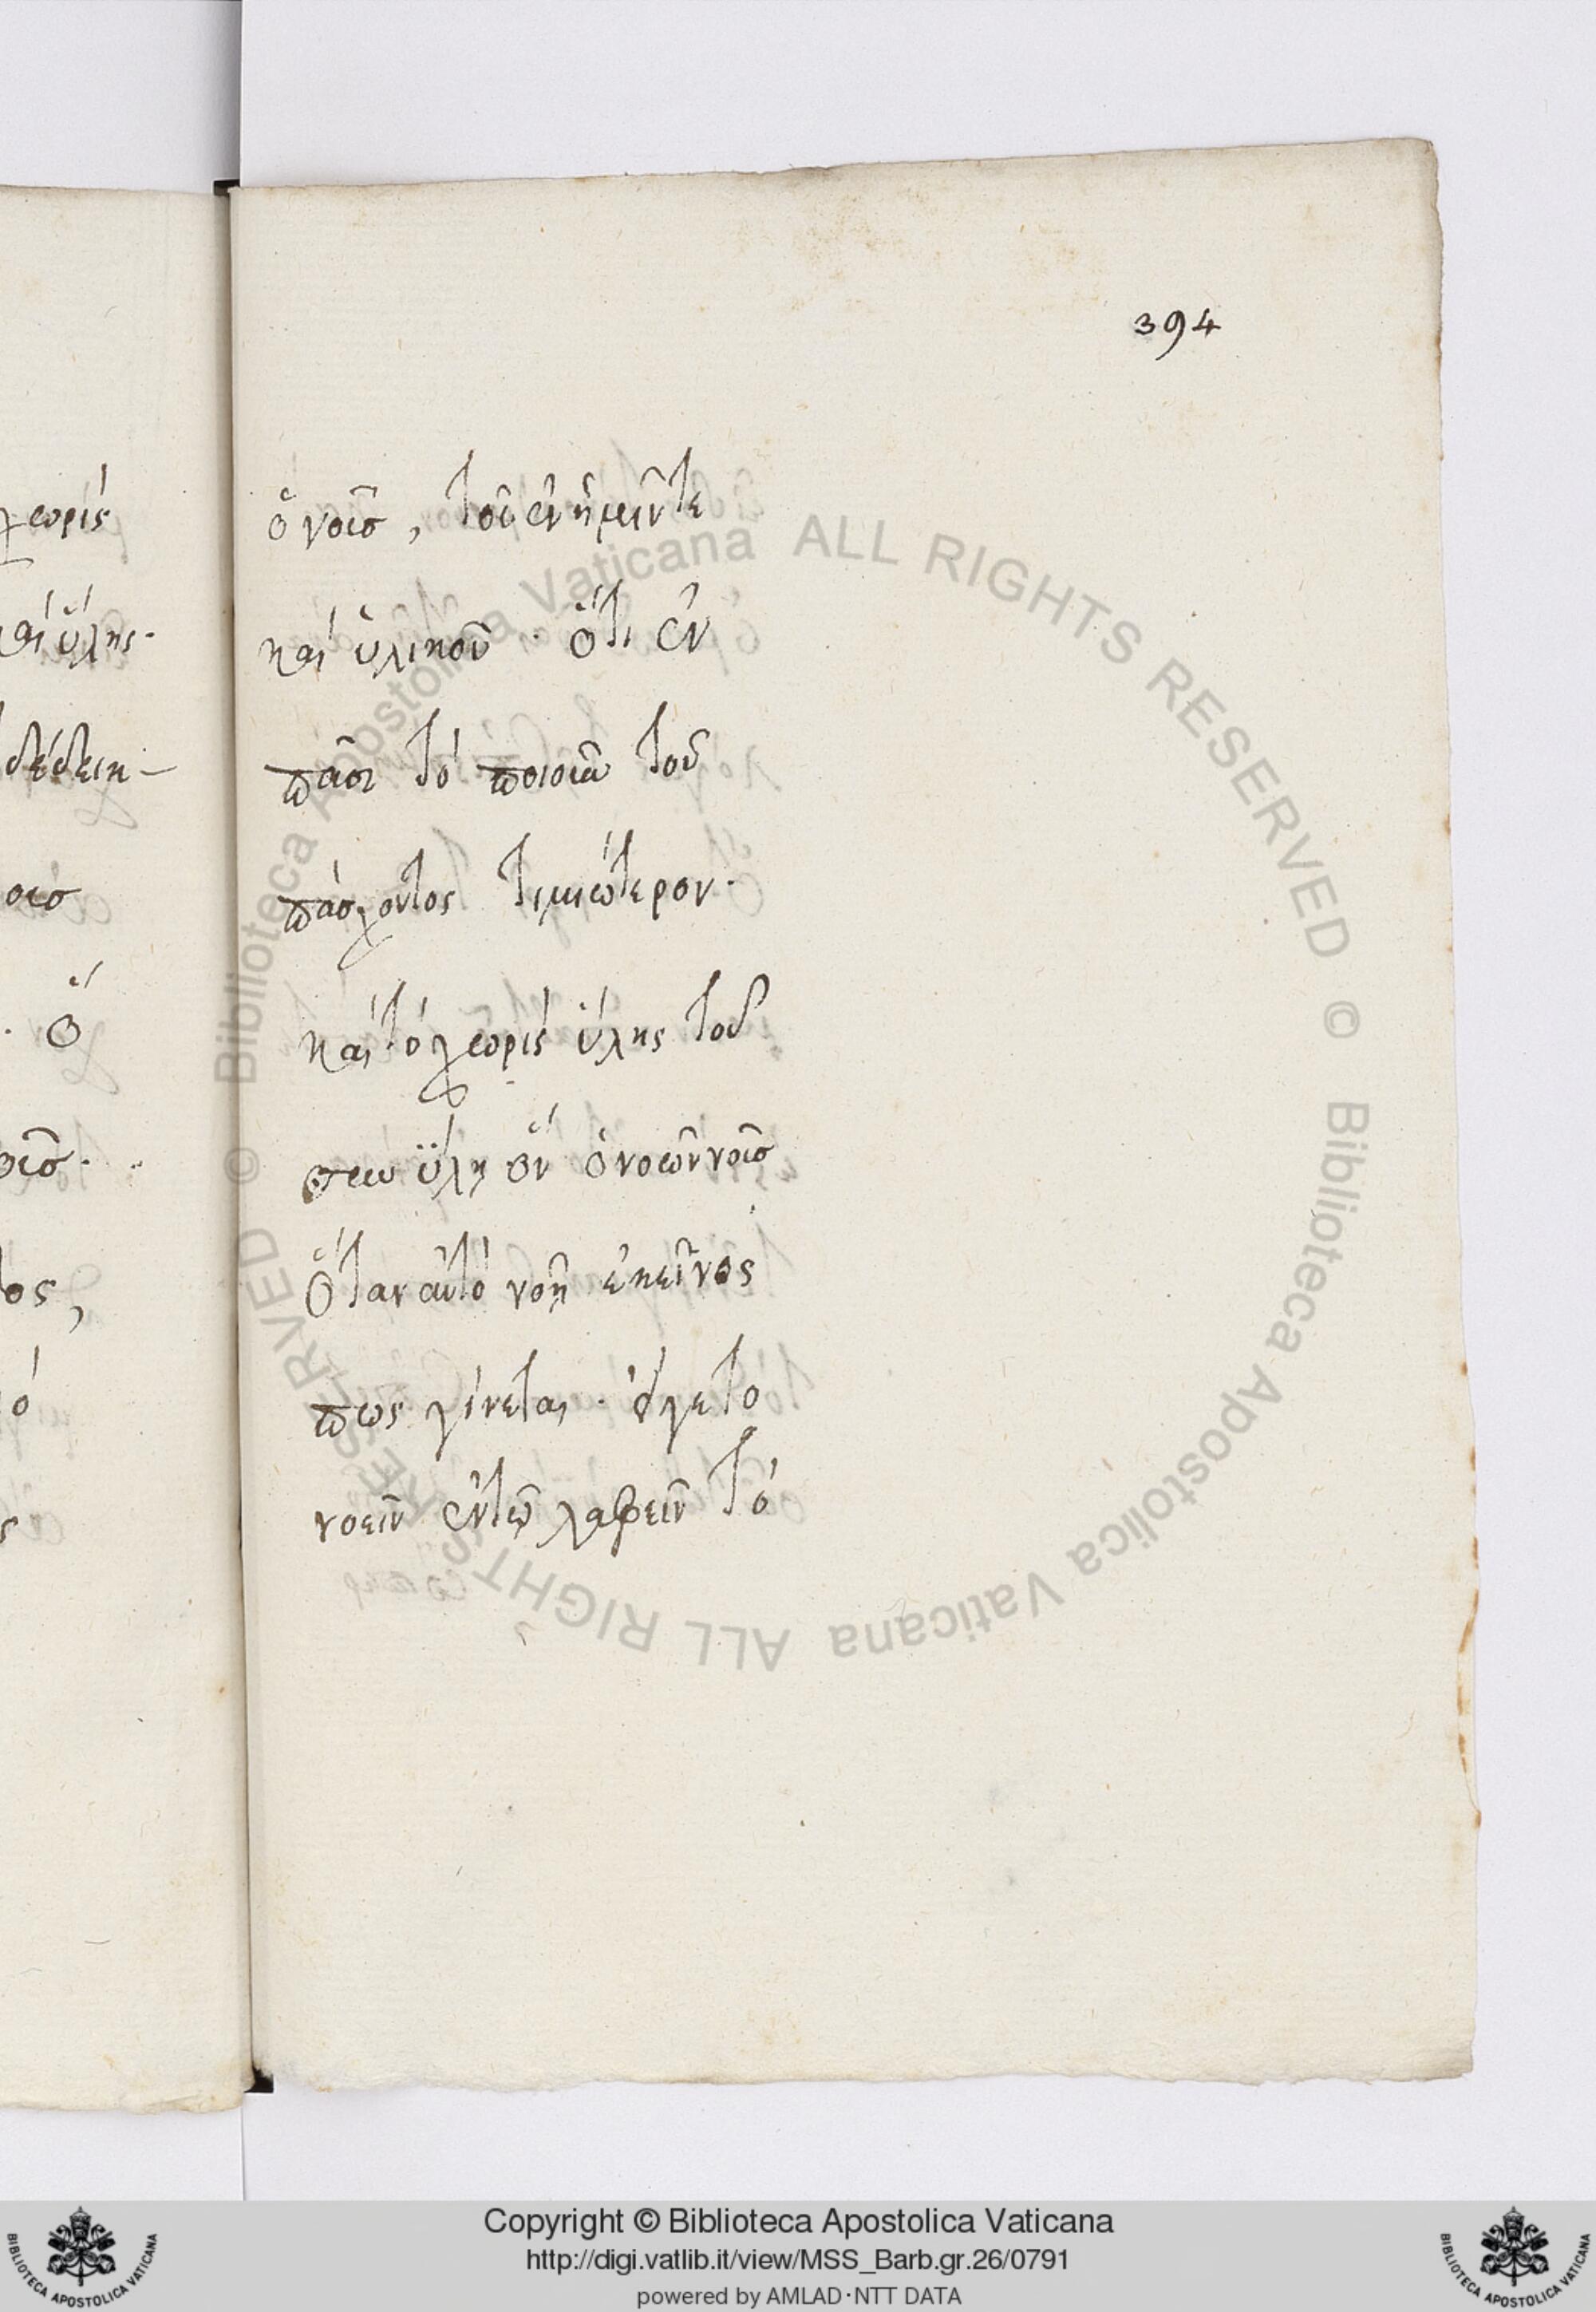 394
χωρὶς
καὶ ὕλης·
δέδεικ-
ὅ
τος,
ὁ νοῦσ, τοῦ ἐν ἡμῖν τε
καὶ ὑλικοῦ · ὅτι ἐν
πᾶσι τὸ ποιοῦν τοῦ
πάσχοντος τιμιώτερον·
καὶ τὸ χωρὶς ὕλης τοῦ
σὺν ὕλη ὂν ὁ νοῶν νοῦσ
Ὅταν αὐτὸ νοῆ ἐκεῖνος
πως γίνεται · ὅγε τὸ
νοεῖν ἐν τῶ λαβεῖν τὸ
© Biblioteca Apostolica Vaticana ALL RIGHTS RESERVED © Biblioteca Apostolica Vaticana ALL RIGHTS RESERVED
Copyright © Biblioteca Apostolica Vaticana
http://digi.vatlib.it/view/MSS_Barb.gr.26/0791
powered by AMLAD·NTT DATA
BIBLIOTECA APOSTOLICA VATICANA
BIBLIOTECA APOSTOLICA VATICANA